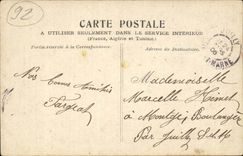 92
CARTE POSTALE
A UTILISER SEULEMENT DANS LE SERVICE INTÉRIEUR
(France, Algérie et Tunisie)
Partie réservée à la Correspondance.
Adresse du Destinataire.
Nos Bonnes Amitiés
Mademoiselle
Marcelle
à Boulanger
Par Juilly S & M
MARNE